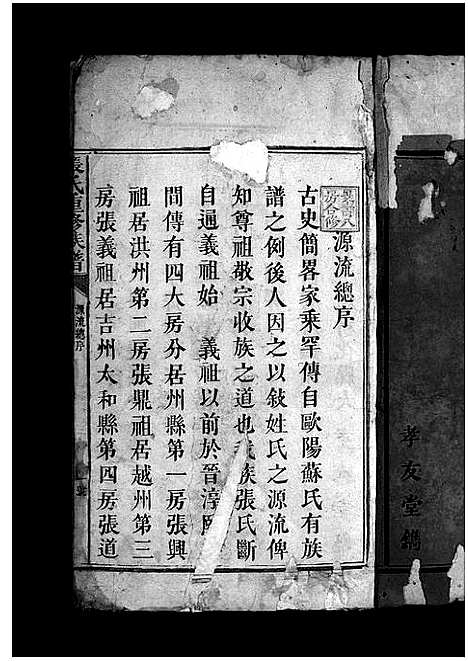 孝友堂鐫
源流總序
古史簡畧家乘罕傳自歐陽蘇氏有族
譜之例後人因之以敍姓氏之源流俾
知尊祖敬宗收族之道也我族張氏斷
自遁義祖始 義祖以前於晉淳熙
間傳有四大房分居州縣第一房張興
祖居洪州第二房張鼎祖居越州第三
房張義祖居吉州太和縣第四房張道
張氏重修族譜
源流總序